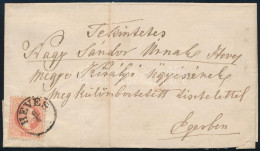 Tekintetes
Nagy Sándor Urnak Heves
megye Királyi ügyészének
megkülönböztetett tisztelettel
Egerben
HEVES